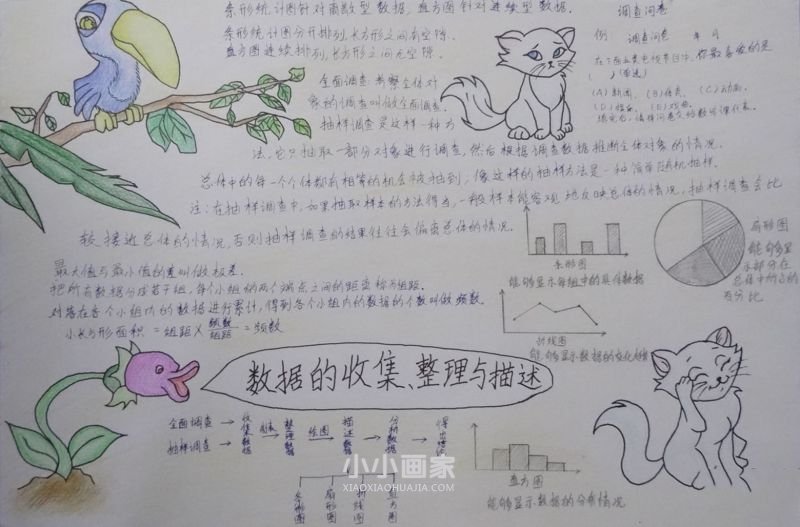 条形统计图针对离散型数据，直方图针对连续型数据．
条形统计图分开排列，长方形之间有空隙．
直方图连续排列，长方形之间无空隙．
全面调查：考察全体对
象的调查叫做全面调查．
抽样调查是这样一种方
法，它只抽取一部分对象进行调查，然后根据调查数据推断全体对象的情况．
总体中的每一个个体都有相等的机会被抽到，像这样的抽样方法是一种简单随机抽样．
注：在抽样调查中，如果抽取样本的方法得当，一般样本能客观地反映总体的情况，抽样调查会比
较接近总体的情况，否则抽样调查的结果往往会偏离总体的情况．
调查问卷
例 调查问卷 年 月
在下面五类电视节目中，你最喜爱的是
（ ）（单选）
(A)新闻， (B)体育， (C)动画，
(D)娱乐， (E)戏曲．
填完后，请将问卷交给数学课代表．
最大值与最小值的差叫做极差．
把所有数据分成若干组，每个小组的两个端点之间的距离称为组距．
对落在各个小组内的数据进行累计，得到各个小组内的数据的个数叫做频数．
小长方形面积 = 组距 × 频数/组距 = 频数
条形图
能够显示每组中的具体数据
扇形图
能够显
示部分在
总体中所占的
百分比
折线图
能够显示数据的变化趋势
数据的收集、整理与描述
全面调查
抽样调查
收集数据
制表
整理数据
绘图
描述数据
分析数据
得出结论
条形图
扇形图
折线图
直方图
直方图
能够显示数据的分布情况
小小画家
XIAOXIAOHUAJIA.COM